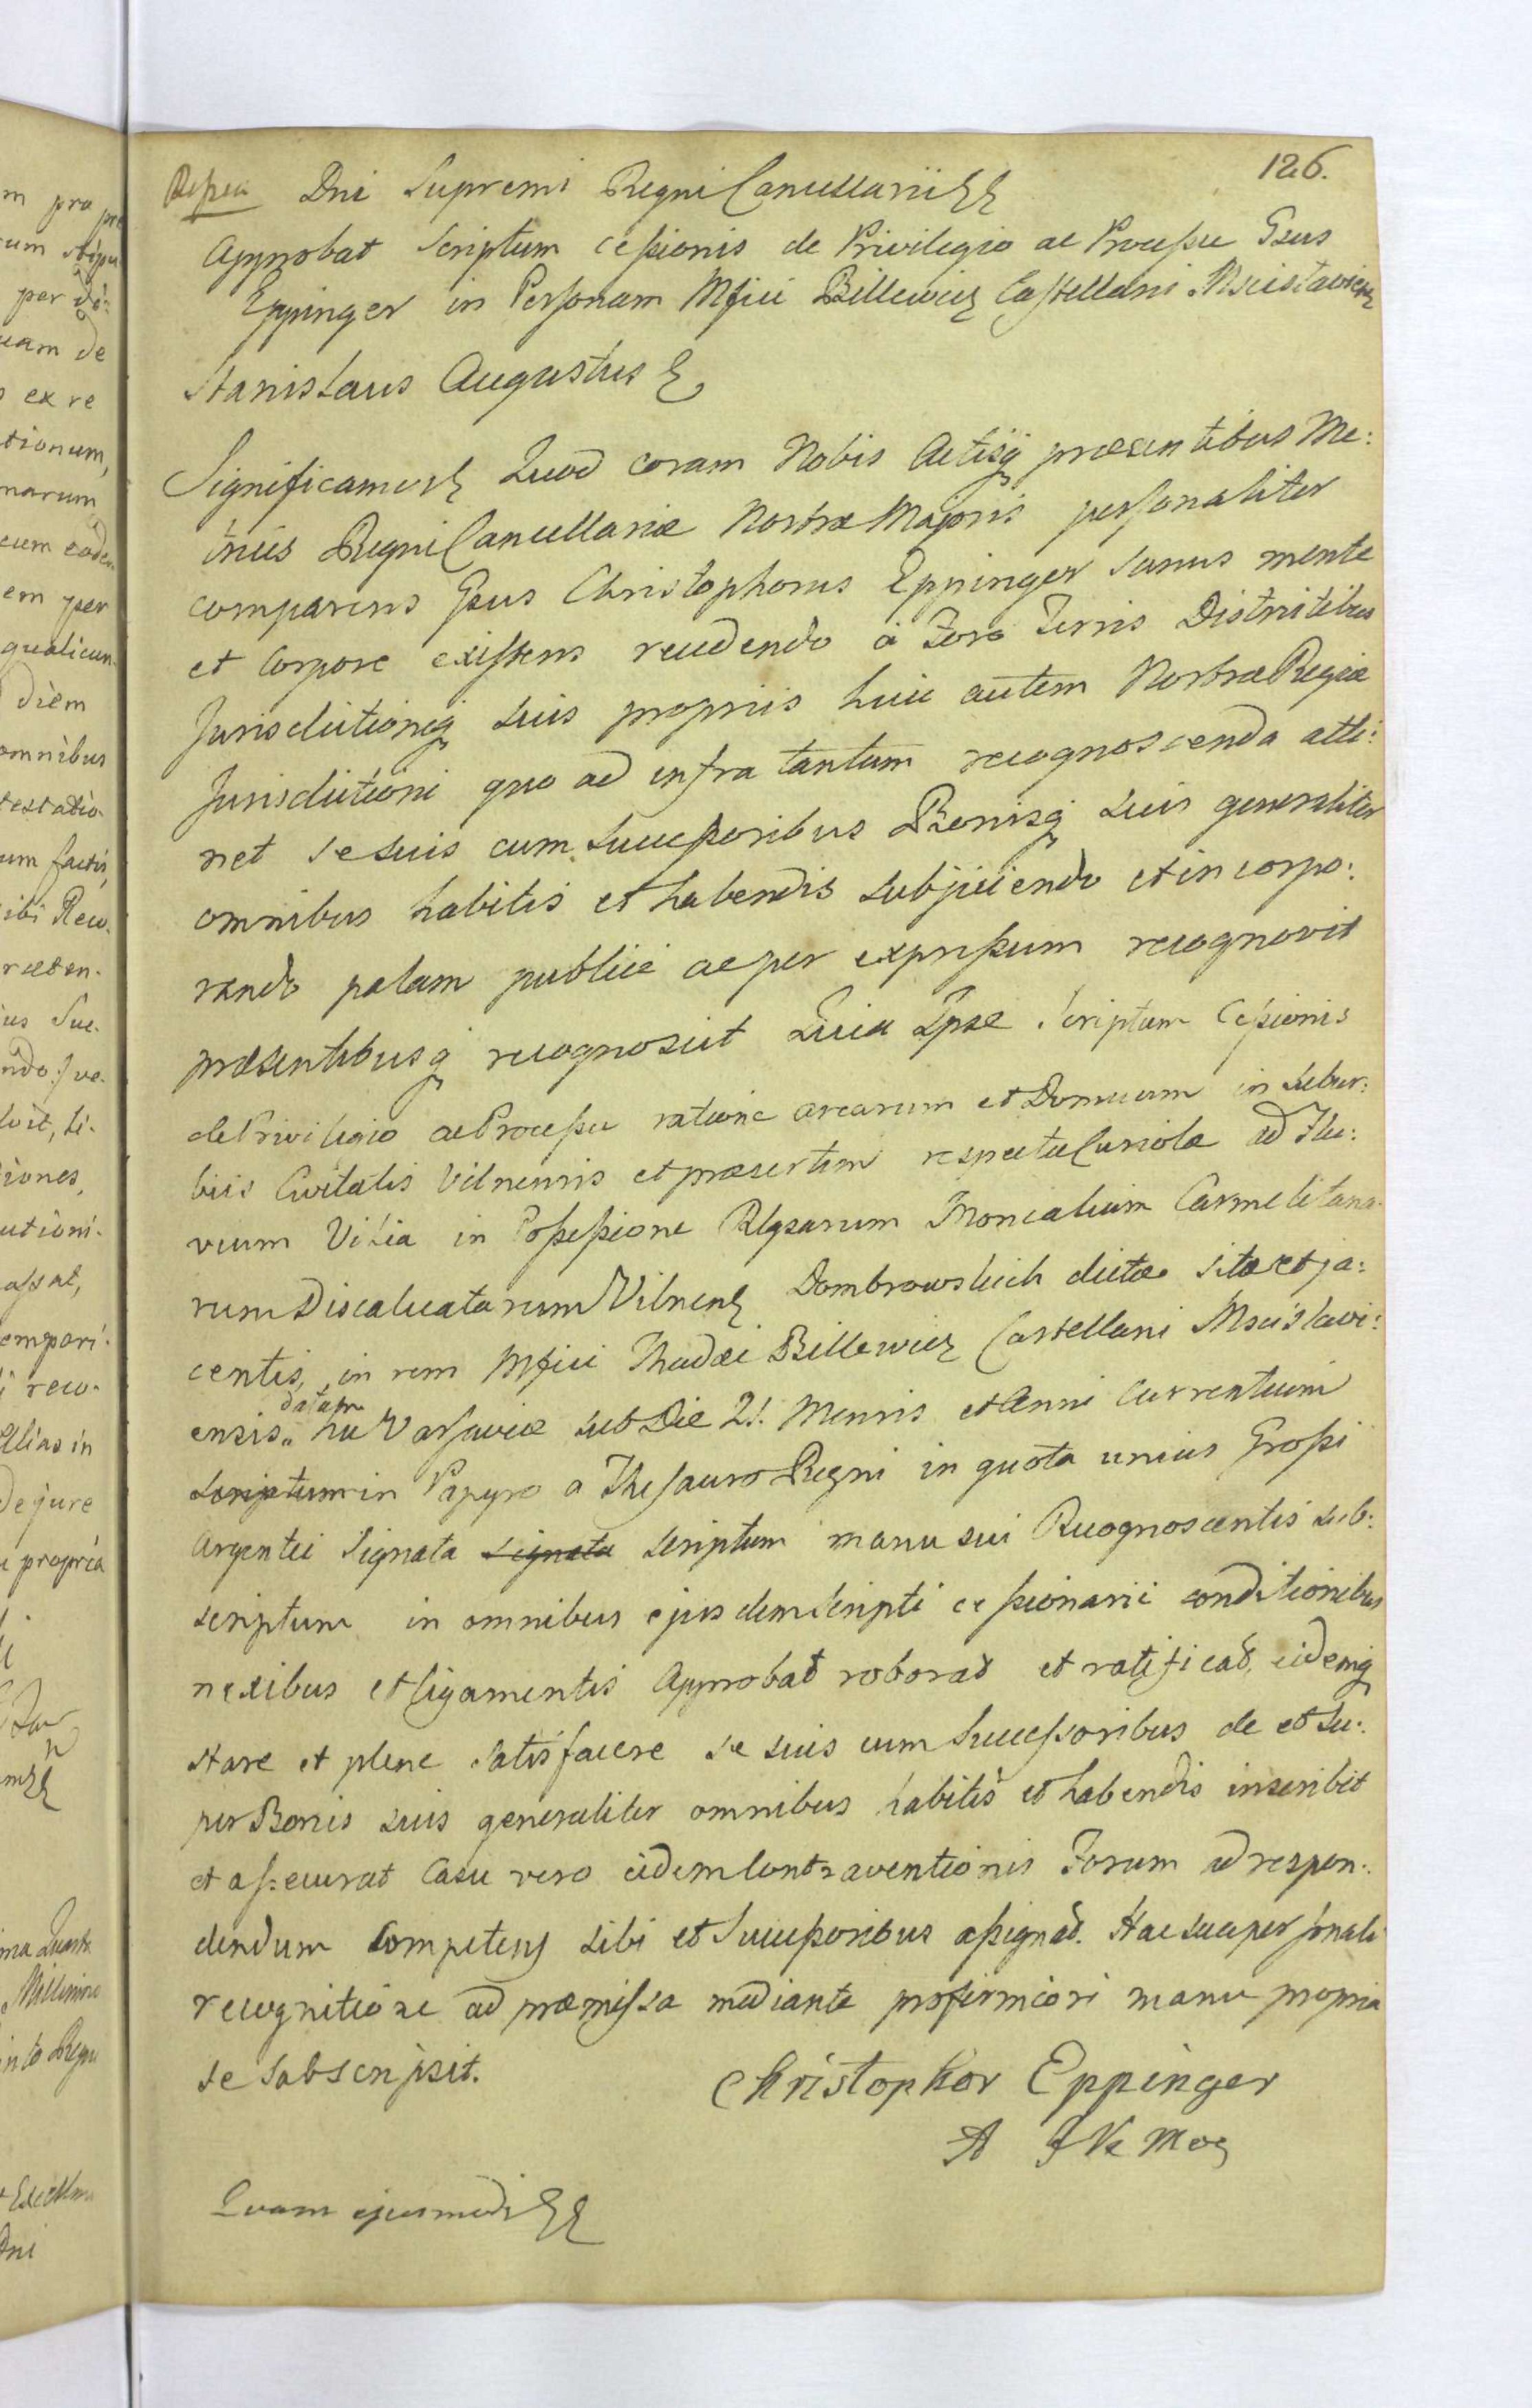 126.
Dni Supremi Regni Cancellarii
Approbat Scriptum Cessionis de Privilegio ac Processu Gsus
Eppinger in Personam Mfici Billewicz Castellani Mscislaviens
Stanislaus Augustus
Significamus Quod coram Nobis Actisq praesentibus Me:
tricis Regni Cancellariae Nostrae Majoris personaliter
comparens Gsus Christophorus Eppinger sanus mente
et Corpore existens recedendo a Foro Terris Districtibus
Jurisdictioneq suis propriis huic autem Nostrae Regiae
Jurisdictioni quo ad infra tantum recognoscenda atti:
net se suis cum Successoribus Bonisq suis generaliter
omnibus habitis et habendis subjiciendo et incorpo:
rando palam publice ac per expressum recognovit
praesentibusq recognoscit Quia Ipse Scriptum Cessionis
de Privilegio ac Processu ratione arearum et Domuum in Subur:
biis Civitatis Vilnensis et praesertim respectu Curiolae ad Flu:
vium Vilia in Possessione Rlgsarum Monialium Carmelitana
rum Discalceatarum Vilnens Dombrowskich dictae sitae et ja:
centis, in rem Mfici Thadaei Billewicz Castellani Mscislavi:
datam
ensis hic Varsaviae sub Die 21. Mensis et Anni Currentium
Scriptum in Papyro a Thesauro Regni in quota unius Grossi
Argentei Signata signata scriptum manu sui Recognoscentis sub:
scriptum in omnibus ejusdem Scripti cessionarii conditionibus
nexibus et ligamentis Approbat roborat et ratificat, eidemq
stare et plene satisfacere se suis cum Successoribus de et su:
per Bonis suis generaliter omnibus habitis et habendis inscribit
et assecurat Casu vero eidem Contraventionis Forum ad respon:
dendum Competens sibi et Successoribus assignat. Hac sua personali
recognitione ad praemissa mediante pro firmiori manu propria
se subscripsit.
Christophor Eppinger
Quam ejusmodi